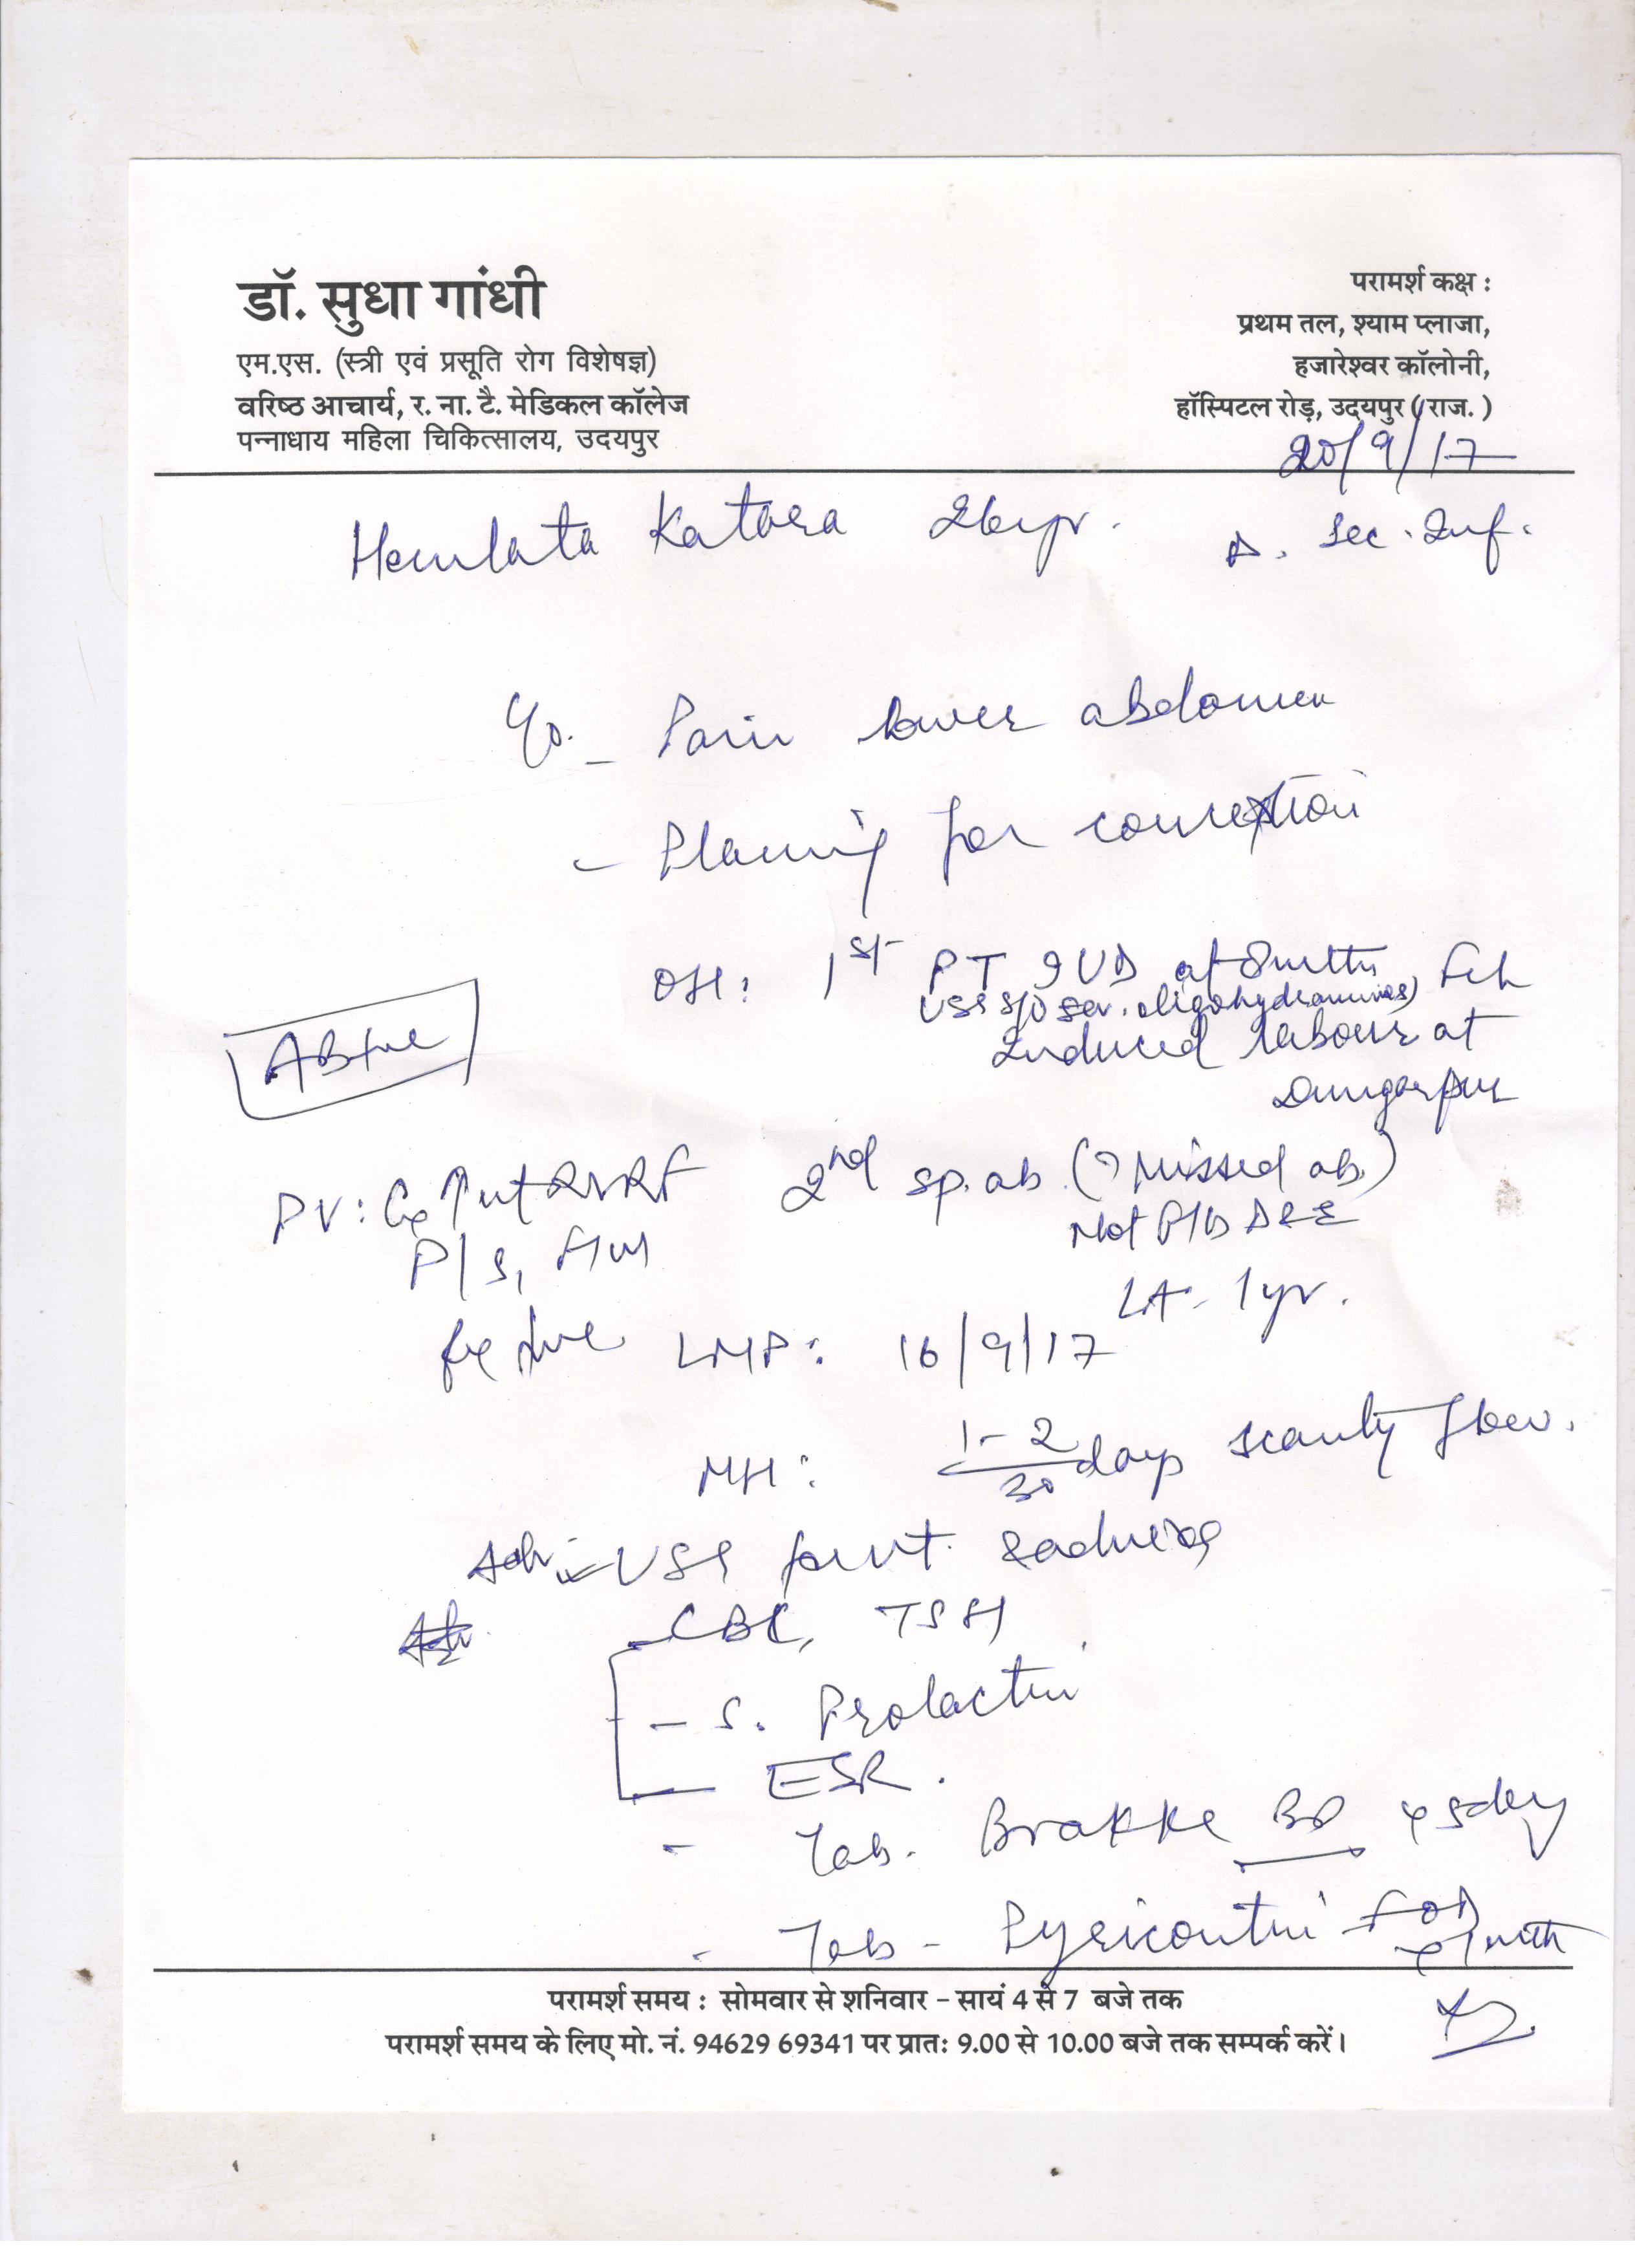 डॉ. सुधा गांधी
एम.एस. (स्त्री एवं प्रसूति रोग विशेषज्ञ)
वरिष्ठ आचार्य, र. ना. टै. मेडिकल कॉलेज
पन्नाधाय महिला चिकित्सालय, उदयपुर
परामर्श कक्ष :
प्रथम तल, श्याम प्लाजा,
हजारेश्वर कॉलोनी,
हॉस्पिटल रोड़, उदयपुर (राज.)
20/9/17
Hemlata Katara 26yr.
Δ. Sec. Inf.
C/o. - Pain lower abdomen
- Planning for conception
OH: 1st PT IUD at 8mths, Feh
USG S/O Sev. oligohydramnios)
Induced labour at
Dungarpur
AB+ve
PV: Cx ↑ ut RVRF
2nd sp. ab. (? Missed ab.)
P/S, Hm
Not F/B D&E
fx +ve
LA - 1yr.
LMP: 16/9/17
MH: 1-2/30 days scanty flow.
Adv:- USG
- CBC, TSH
- S. Prolactin
- ESR.
- Tab. Brakke BD x 5day
- Tab - Pyricontin F OD
x 1 mth
परामर्श समय : सोमवार से शनिवार - सायं 4 से 7 बजे तक
परामर्श समय के लिए मो. नं. 94629 69341 पर प्रातः 9.00 से 10.00 बजे तक सम्पर्क करें।